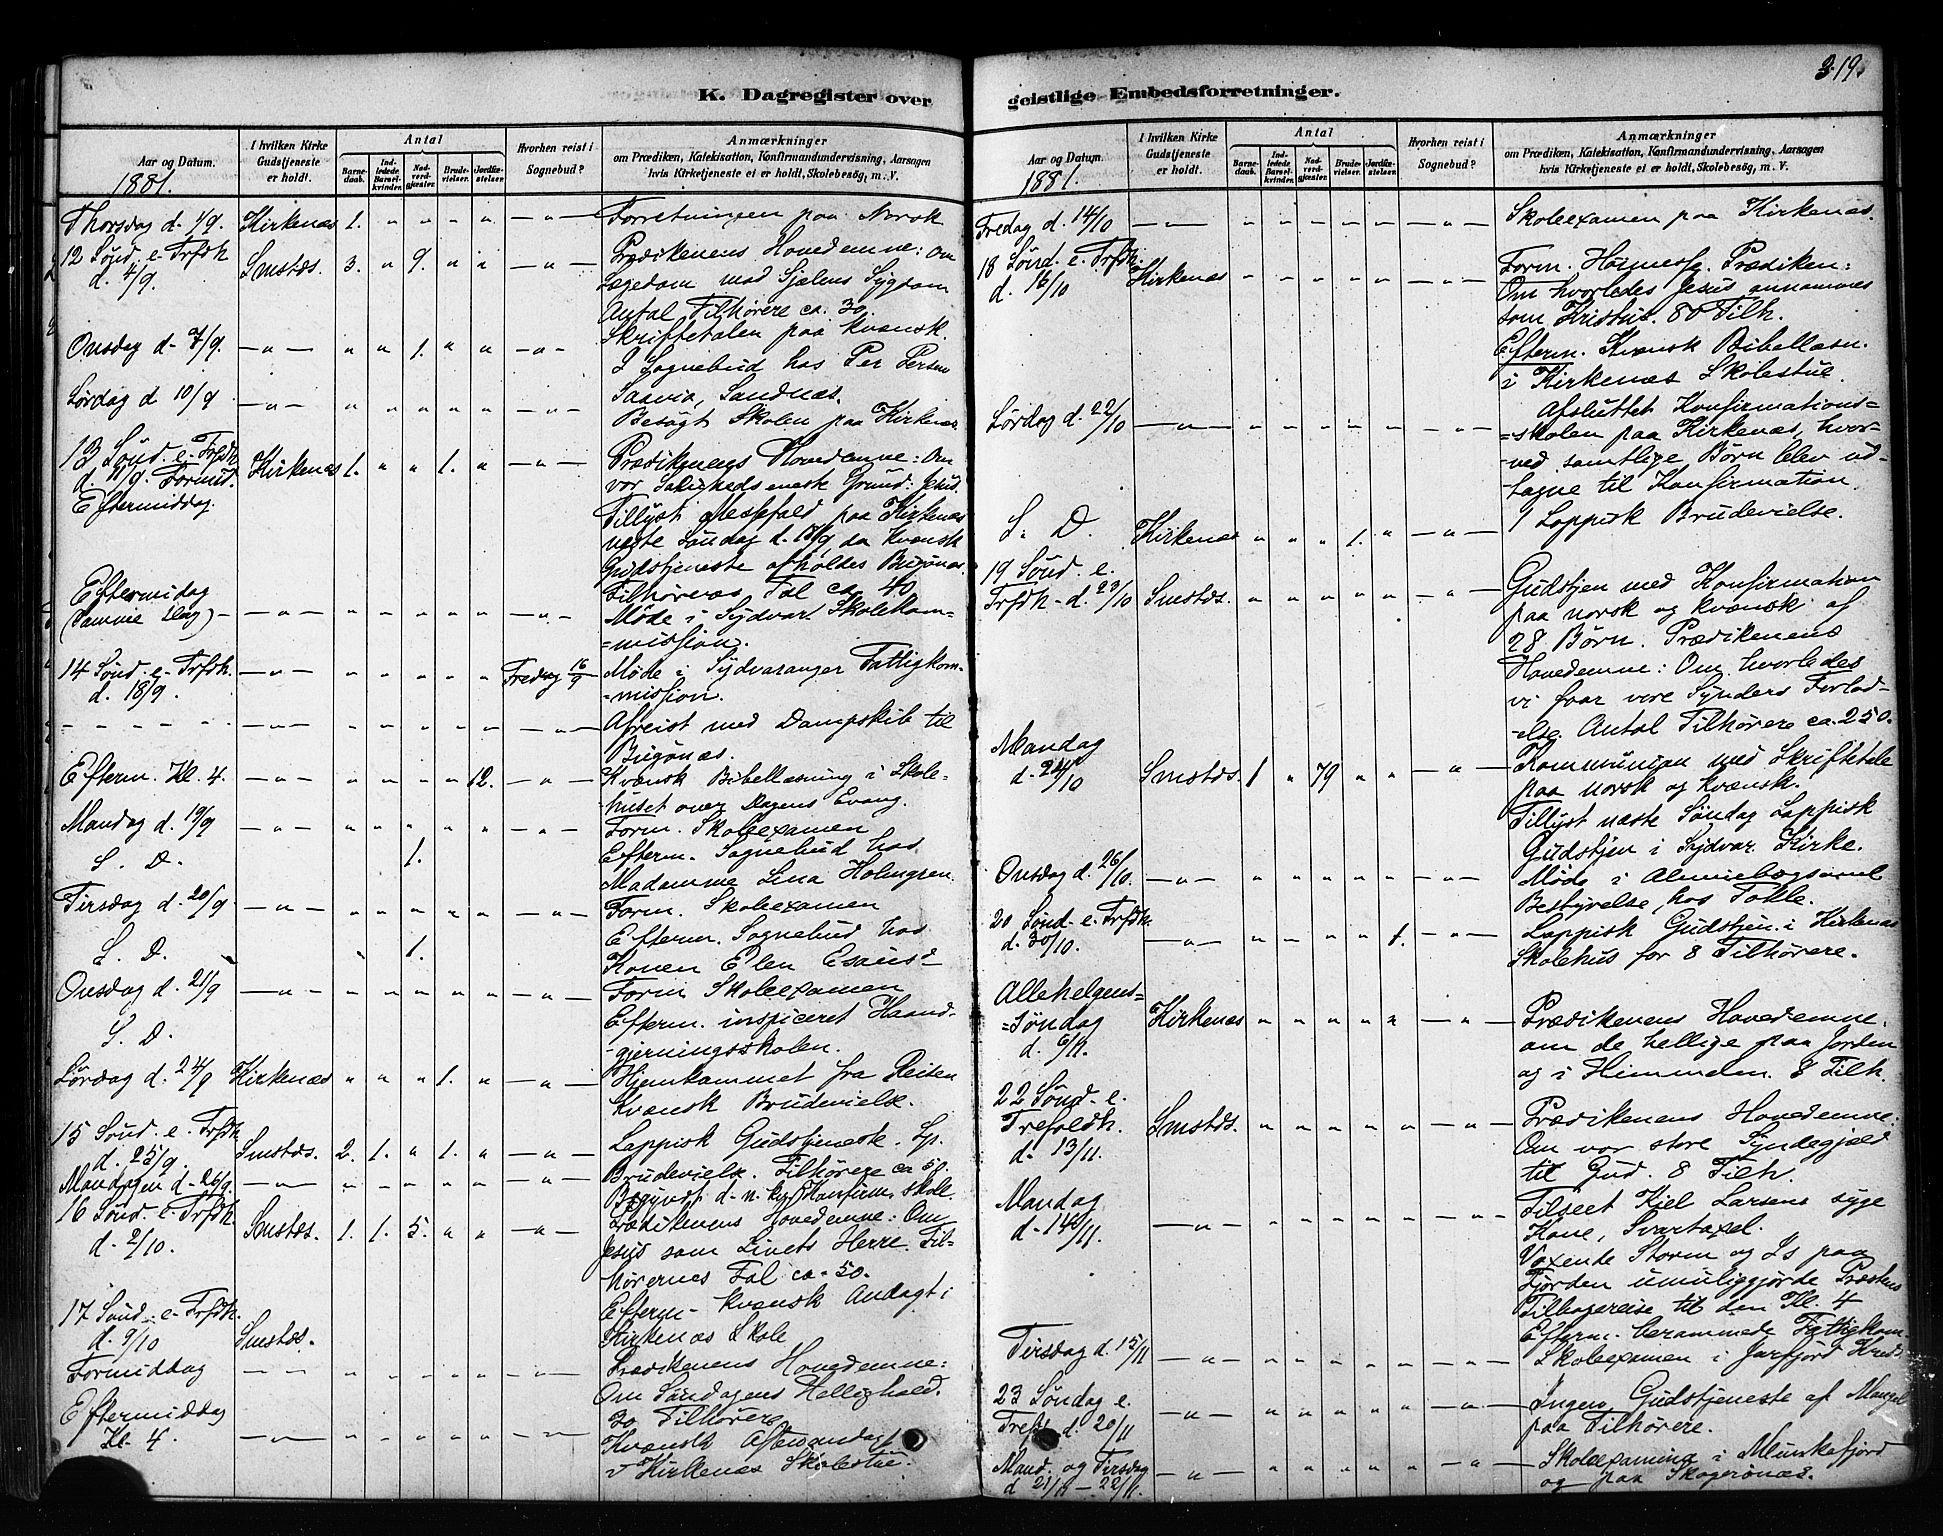 K. Dagregister over
Aar og Datum.
I hvilken Kirke
Gudstjeneste
er holdt.
Antal
Barne-
daab.
Ind-
ledede
Barsel-
kvinder.
Nad-
verd-
gjæster.
Brude-
vielser.
Jordfæ-
stelser.
Hvorhen reist i
Sognebud?
Anmærkninger
om Prædiken, Katekisation, Konfirmandundervisning, Aarsagen
hvis Kirketjeneste ei er holdt, Skolebesög, m. V.
1881.
Thorsdag d. 1/9. Kirkenæs 1. " " " " — " — Forretningen paa Norsk
12 Sönd. e. Trfdh. Prædikenens Hovedemne: Om
d. 4/9. Smstds. 3. " 9. " " — " — Lægedom mod Sjælens Sygdom
Antal Tilhörere ca. 30.
Skriftetalen paa kvænsk.
Onsdag d. 7/9. — " — " " 1. " " — " — I Sognebud hos Per Persen
Lördag d 10/9 — " — " " " " " — " — Sandnæs.
Besögt Skolen paa Kirkenæs
13 Sönd. e. Trfdh. Prædikenens Hovedemne: Om
d. 11/9. Formid. Kirkenæs 1. " " 1. " — " — vor Saligheds eneste Grund: Jesus.
Eftermiddag. Tillyst Messefald paa Kirkenæs
næste Søndag d. 18/9, da kvænsk
Gudstjeneste afholdes Bugönæs.
Eftermidag Tilhöreres Tal ca 40
(samme Dag) — " — " " " " " — " — Möde i Sydvar. Skolekom=
=mission.
14 Sönd. e. Trfdh. — " — " " " " " Fredag 16/9 Möde i Sydvaranger Fattigkom-
d. 18/9. =mission.
— " — " " " " " — " — Afreist med Dampskib til
Bugönæs.
Efterm. Kl. 4. — " — " " " " 12. — " — Kvænsk Bibellæsning i Skole-
huset over Dagens Evang.
Mandag d. 19/9 — " — " " " " " — " — Form. Skoleexamen
S. D. 1. Efterm. Sognebud hos
Madamme Lina Holmgren.
Tirsdag d. 20/9 — " — " " " " " — " — Form. Skoleexamen
Efterm. Sognebud hos
S. D. 1. Konen Elen Esaiasd=
Onsdag d. 21/9 — " — " " " " " — " — Form Skoleexamen
S. D. Efterm. inspiceret Haand-
-gjerningsskolen.
Lördag d. 24/9 Kirkenæs " " " 1. " — " — Hjemkommet fra Reisen
Kvænsk Brudevielse.
15 Sönd. e. Trfdh. Lappisk Gudstjeneste. Lp.
d. 25/9. Smstds. 2. 1. " 1. " — " — Brudevielse. Tilhörere ca 50.
Mandagen d. 26/9. — " — " " " " " — " — Begyndt d. n. Konfirm. skole.
16 Sönd. e. Trfdh. Prædikenens Hovedemne: Om
d. 2/10. Smstds. 1. 1. 5. " " — " — Jesus som Livets Herre. Til-
hörernes Tal ca. 50.
Efterm. kvænsk Andagt i
17 Sönd. e. Trfdh. Kirkenæs Skole
d. 9/10 Smstds.
Formiddag — — " " " " " — " — Prædikenens Hovedemne:
Om Søndagens Hellighold.
Eftermiddag 30 Tilhörere
Kl. 4. — " — " " " " " — " — Kvænsk Aftenandagt
i Kirkenæs Skolestue.
geistlige Embedsforretninger.
319.
Aar og Datum.
I hvilken Kirke
Gudstjeneste
er holdt.
Antal
Barne-
daab.
Ind-
ledede
Barsel-
kvinder.
Nad-
verd-
gjæster.
Brude-
vielser.
Jordfæ-
stelser.
Hvorhen reist i
Sognebud?
Anmærkninger
om Prædiken, Katekisation, Konfirmandundervisning, Aarsagen
hvis Kirketjeneste ei er holdt, Skolebesög, m. V.
1881.
Fredag d. 14/10 — " — " " " " " — " — Skoleexamen paa Kirkenæs.
18 Sönd. e. Trfdh. Form. Höimesse. Prædiken:
d. 16/10 Kirkenæs " " " " " — " — Om hvorledes Jesus annammes
som Kristus. 80 Tilh.
Efterm. Kvænsk Bibellæsn.
i Kirkenæs Skolestue.
Lördag d. 22/10 — " — " " " " " — " — Afsluttet Konfirmations=
=skolen paa Kirkenæs, hvor-
-ved samtlige Börn blev ud-
-tagne til Konfirmation.
S. D. Kirkenæs " " " 1. " — " — 1 Lappisk Brudevielse.
19 Sönd. e.
Trfdh. d. 23/10 Smstds. " " " " " — " — Gudstjen med Konfirmation
paa norsk og kvænsk af
28 Börn. Prædikenens
Hovedemne: Om hvorledes
vi faar vore Synders Forlad-
-else. Antal Tilhörere ca. 250.
Mandag
d. 24/10 Smstds. 1 " 79 " " — " — Kommunion med Skriftetale
paa norsk og kvænsk.
Tillyst næste Søndag Lappisk
Gudstjen i Sydvar. Kirke.
Onsdag d. 26/10. — " — " " " " " — " — Möde i Almuebogsaml
Bestyrelse hos Tokle.
20 Sönd. e. Trfdh.
d. 30/10. — " — " " " " 1. — " — Lappisk Gudstjen. i Kirkenæs
Skolehus for 8 Tilhörere.
Allehelgens=
=Söndag Kirkenæs " " " " " — " — Prædikenens Hovedemne.
d. 6/11. om de hellige paa Jorden
og i Himmelen. 8 Tilh.
22 Sönd. e.
Trefoldh. Smstds. " " " " " — " — Prædikenens Hovedemne:
d. 13/11. Om vor store Syndegjæld
til Gud. 8 Tilh.
Mandag
d. 14/11. — " — " " " " " — " — Tilseet Kiel Larsens syge
Kone, Svartaxel.
Voxende Storm og Is paa
Fjorden umuliggjorde Præstens
Tilbagereise til den Kl. 4
Efterm. berammede Fattigkom.
Tirsdag d. 15/11 — " — " " " " " — " — Skoleexamen i Jarfjord Kreds
23 Söndag e.
Trefh. d. 20/11 — " — " " " " " — " — Ingen Gudstjeneste af Mangel
paa Tilhörere.
Mand. og Tirsdag
d 21/11 — 22/11. — " — " " " " " — " — Skoleexamina i Munkefjord
og paa Skogerönæs.